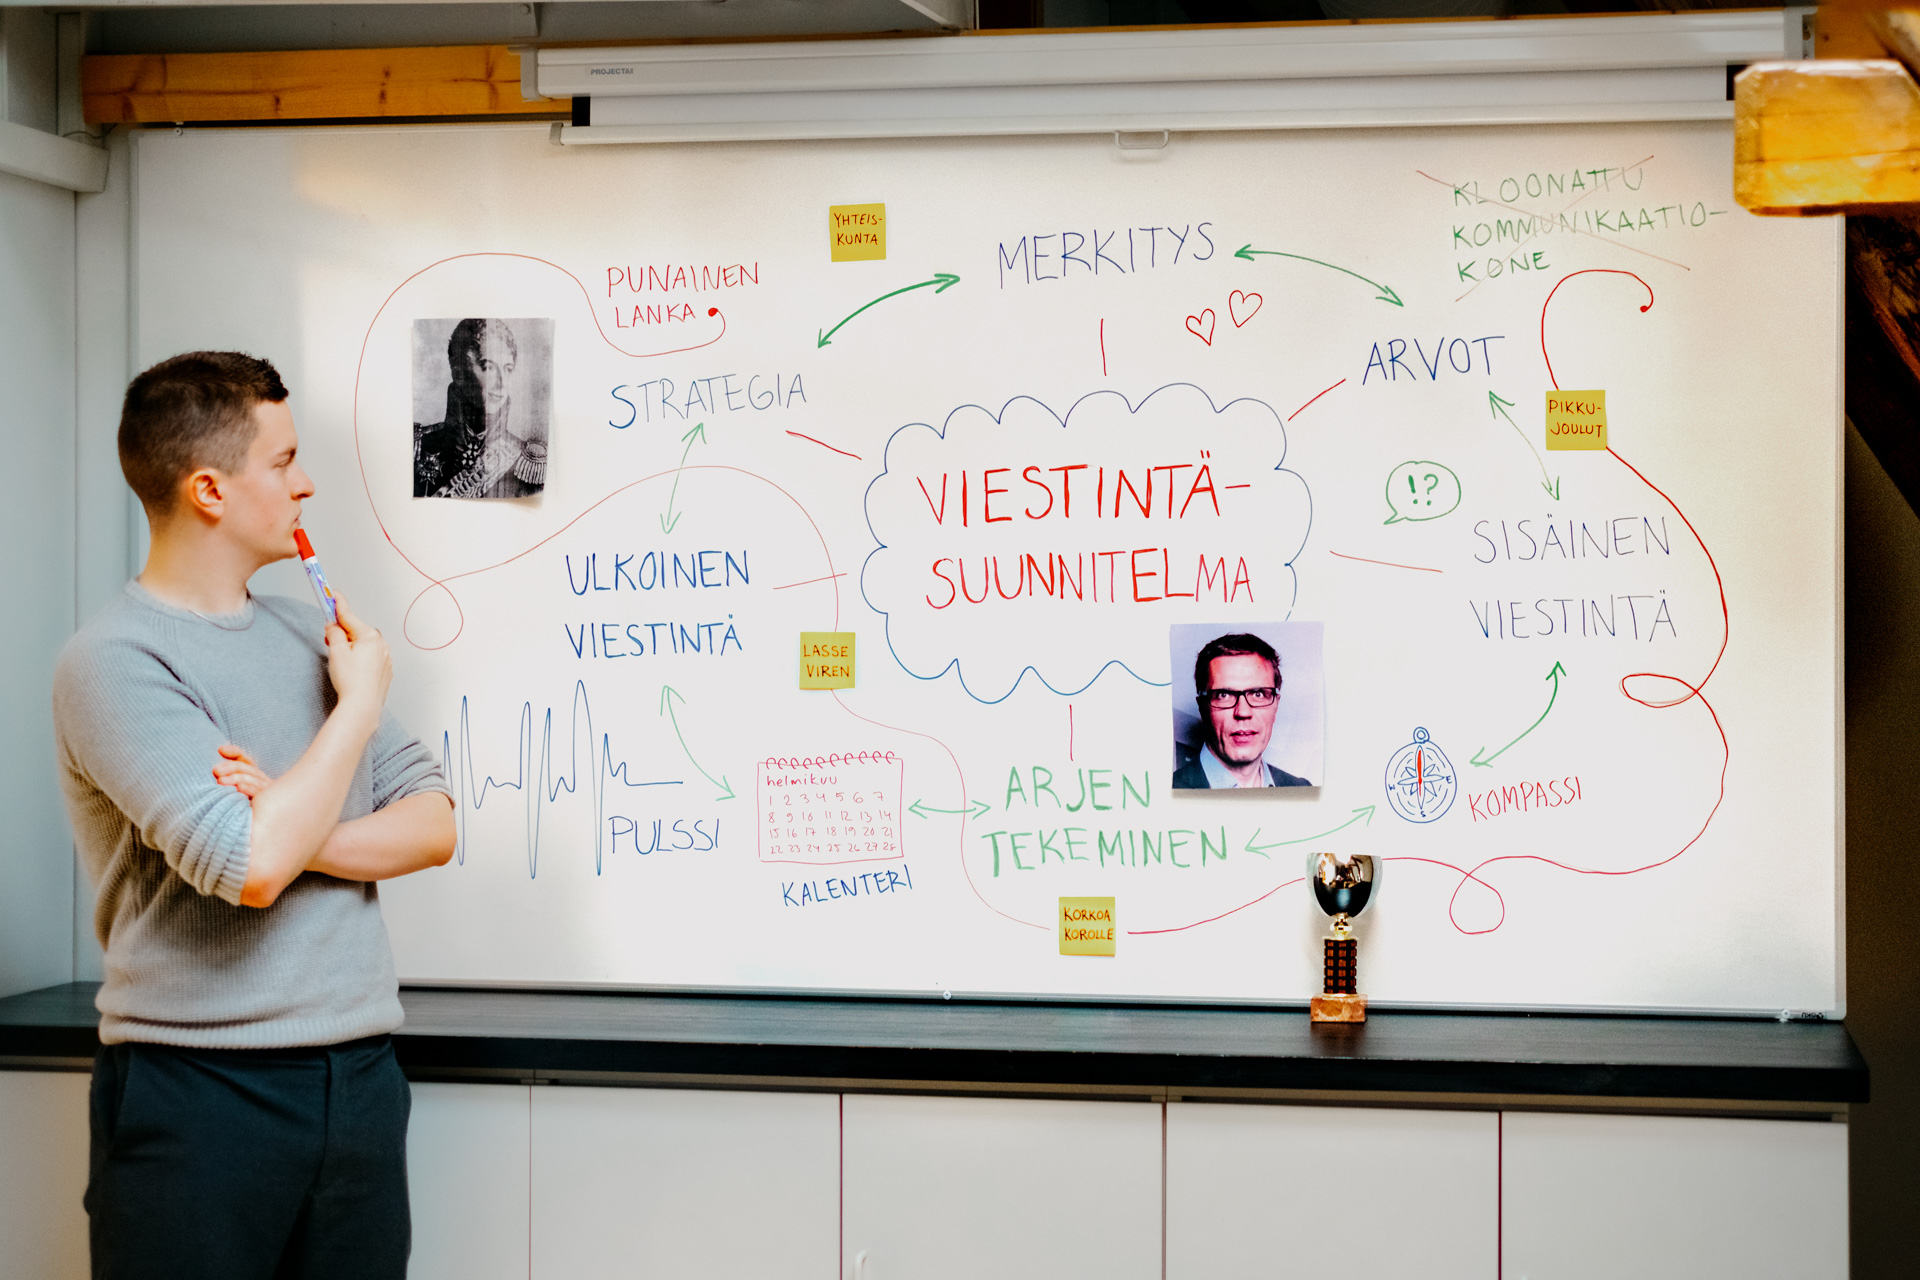 PROJECTA
KLOONATTU
KOMMUNIKAATIO-
KONE
YHTEIS-
KUNTA
MERKITYS
PUNAINEN
LANKA
ARVOT
STRATEGIA
PIKKU-
JOULUT
VIESTINTÄ-
SUUNNITELMA
!?
SISÄINEN
VIESTINTÄ
ULKOINEN
VIESTINTÄ
LASSE
VIREN
PULSSI
helmikuu
1 2 3 4 5 6 7
8 9 10 11 12 13 14
15 16 17 18 19 20 21
22 23 24 25 26 27 28
KALENTERI
ARJEN
TEKEMINEN
W E
S
KOMPASSI
KORKOA
KOROLLE